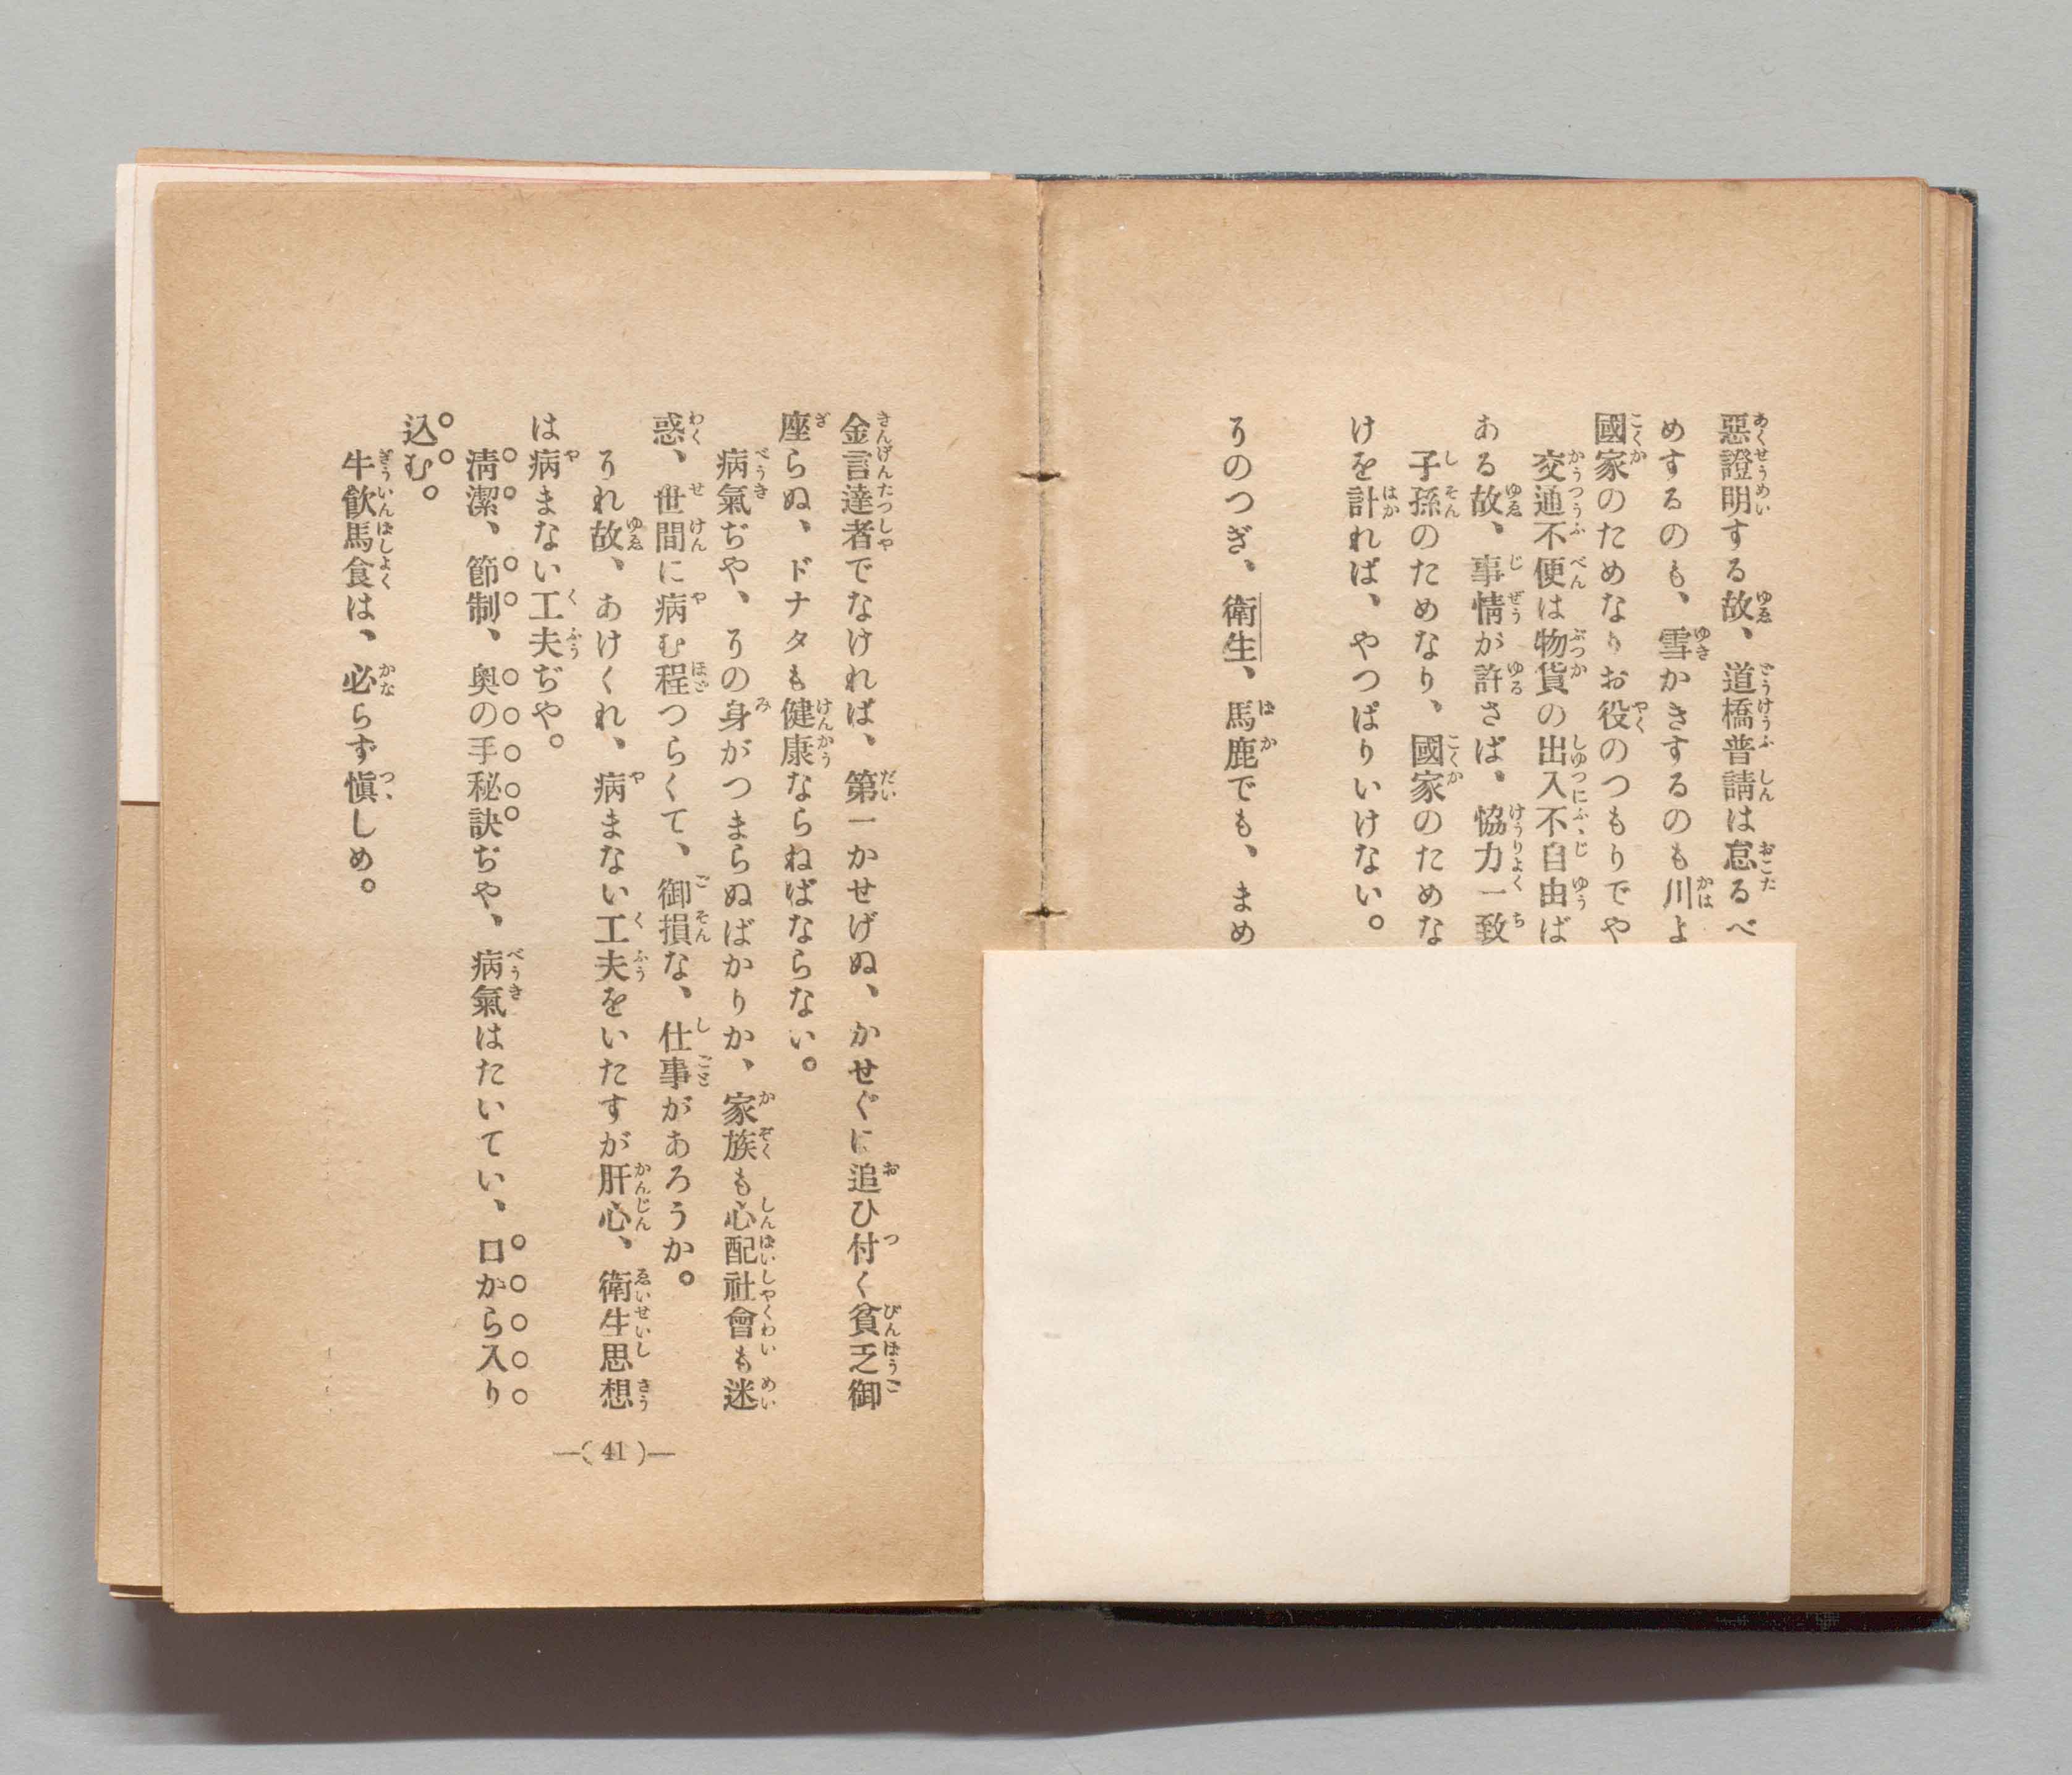 惡證明する故、道橋普請は怠るべ
めするのも、雪かきするのも川よ
國家のためなりお役のつもりでや
交通不便は物貨の出入不自由ば
ある故、事情が許さば、協力一致
子孫のためなり、國家のためな
けを計れば、やつぱりいけない。
りのつぎ、衛生、馬鹿でも、まめ
金言達者でなければ、第一かせげぬ、かせぐに追ひ付く貧乏御
座らぬ、ドナタも健康ならねばならない。
病氣ぢや、りの身がつまらぬばかりか、家族も心配社會も迷
惑、世間に病む程つらくて、御損な、仕事があろうか。
りれ故、あけくれ、病まない工夫をいたすが肝心、衛生思想
は病まない工夫ぢや。
淸潔、節制、奥の手秘訣ぢや、病氣はたいてい、口から入り
込む。
牛飮馬食は、必らず愼しめ。
—(41)—